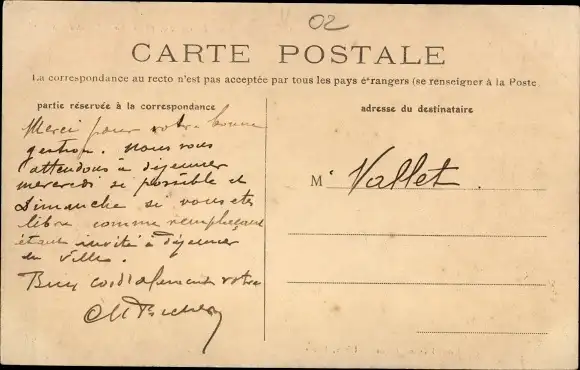 02
CARTE POSTALE
La correspondance au recto n'est pas acceptée par tous les pays étrangers (se renseigner à la Poste
partie réservée à la correspondance
adresse du destinataire
Merci pour votre bonne
gestion. Nous vous
attendons à déjeuner
mercredi si possible et
Dimanche si vous etes
libre comme remplaçant
étant invité à déjeuner
en ville.
Bien cordialement votre
M Vallet